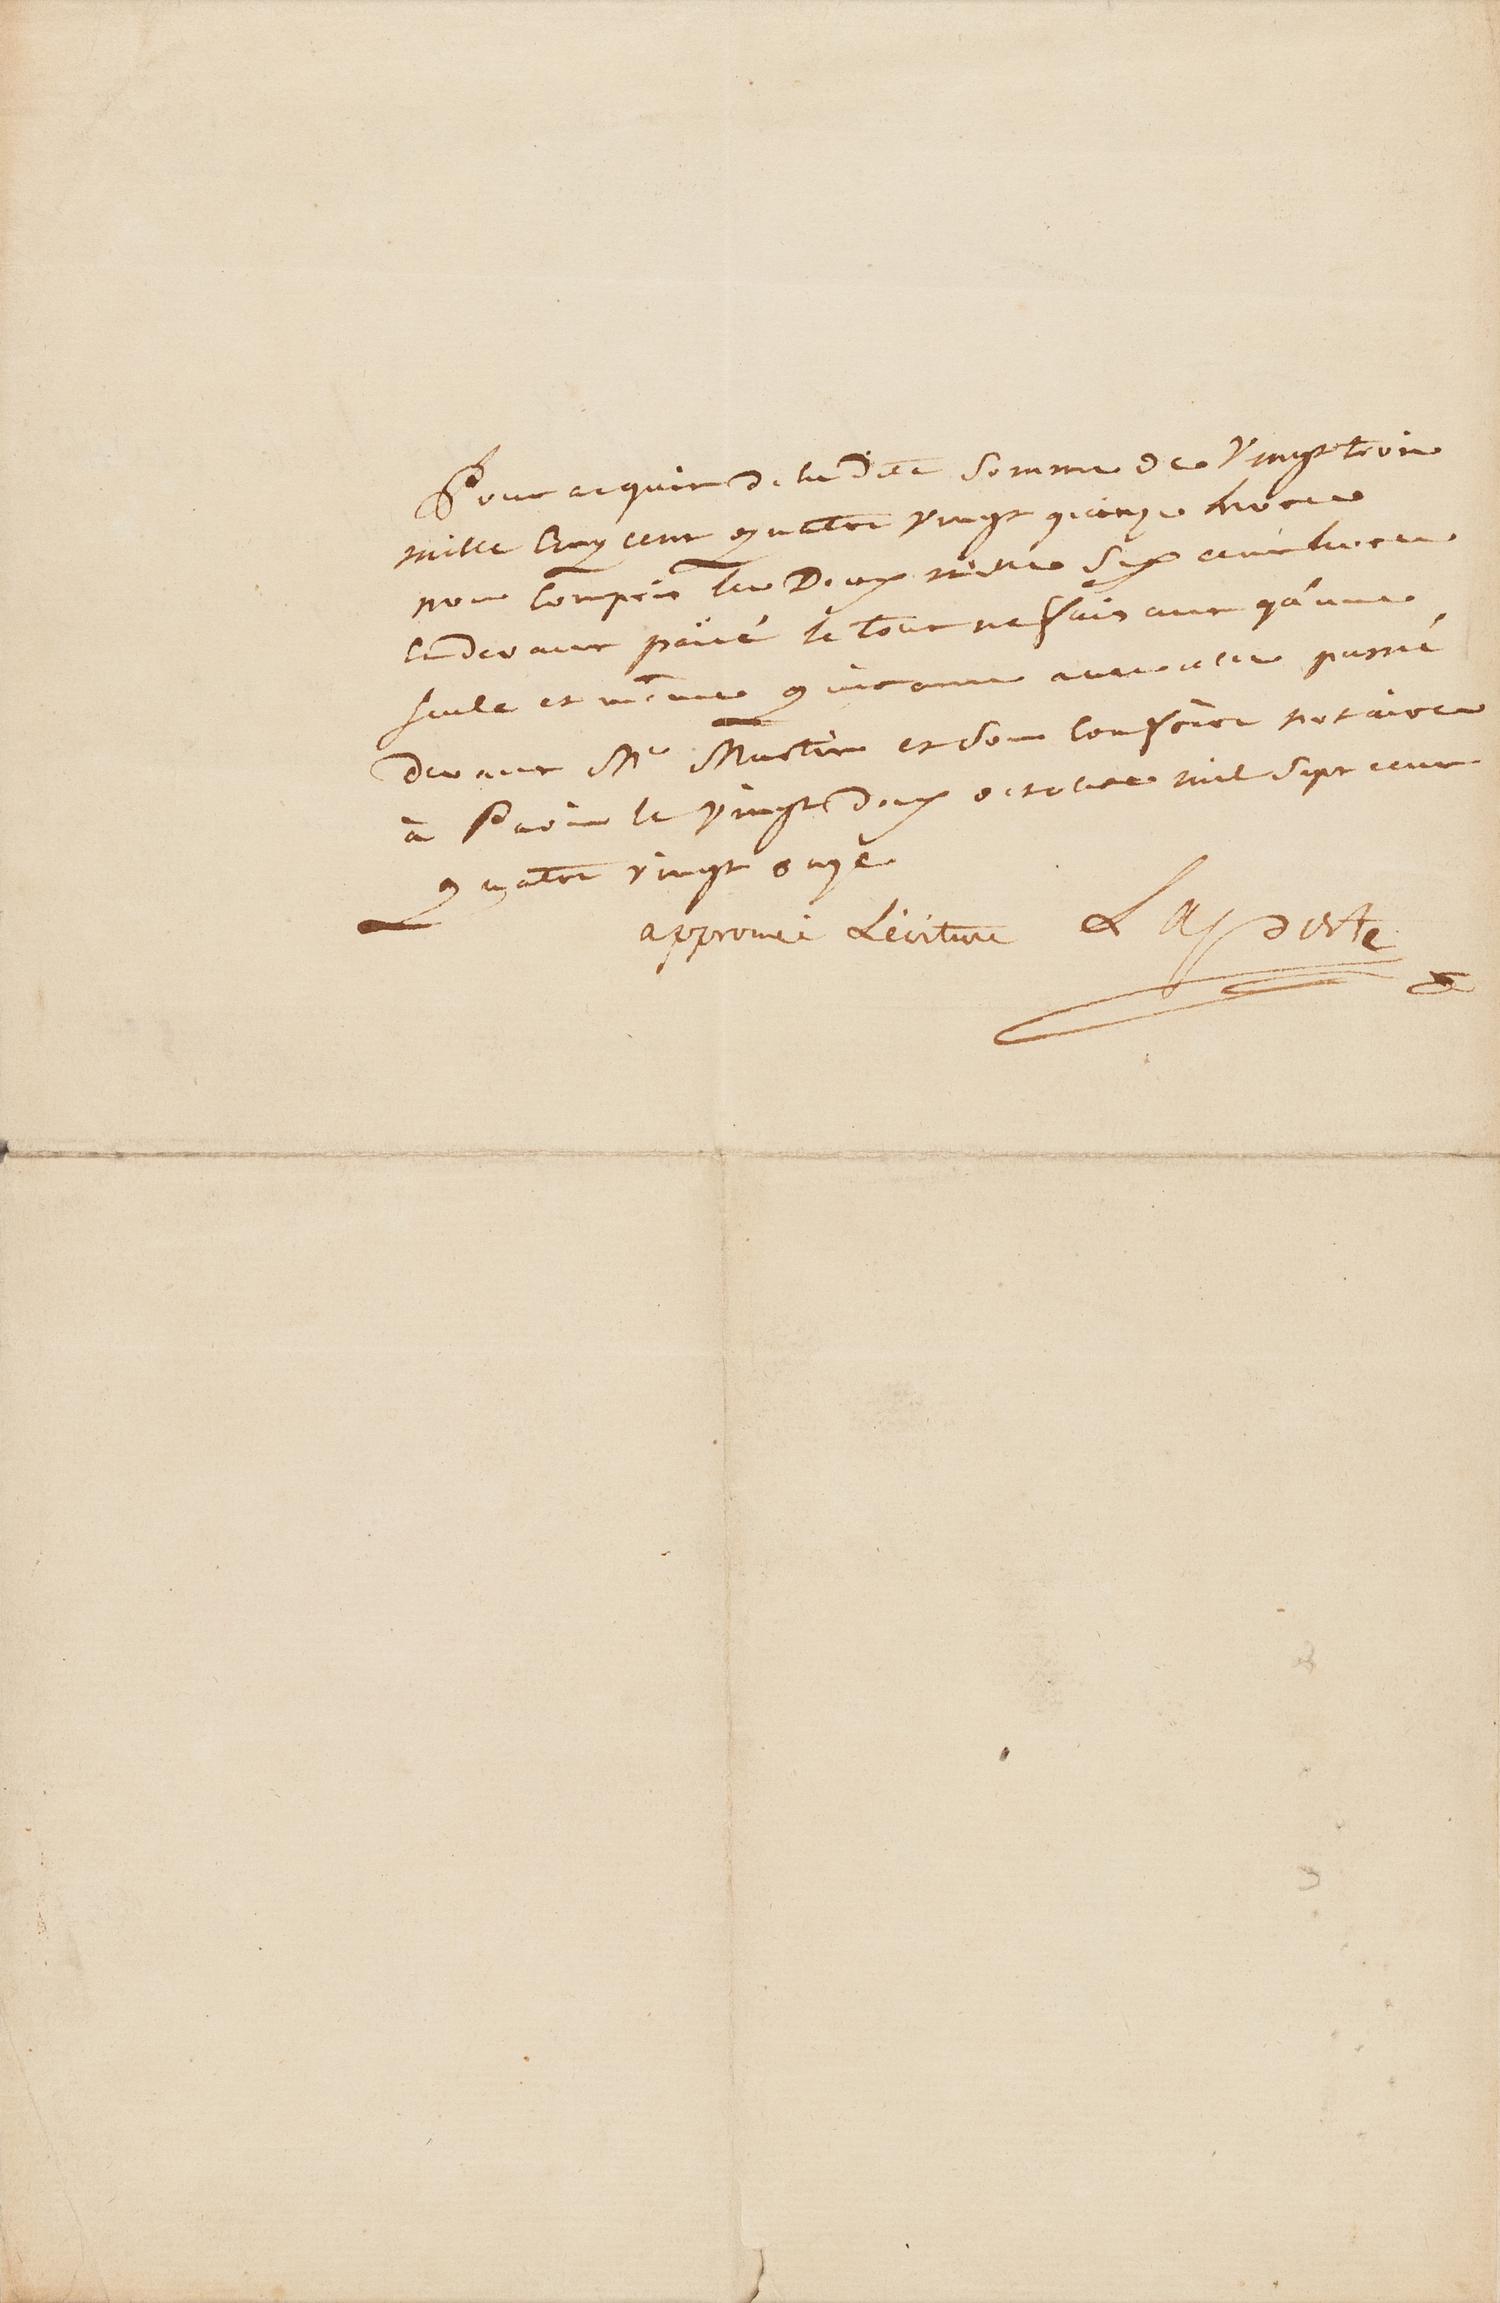 Pour acquit de la dite somme de Vingt trois
mille Cinq cent quatre vingt quinze livres
non Compris les Deux mille Six cent livres
cÿdevant païé le tout ne faisant qu'une
seule et même quittance avec celle passé
devant Me Martin et Son Confrère notaires
à Paris le Vingt Deux octobre mil Sept cent
quatre vingt onze
approuvé L'ecriture Laporte